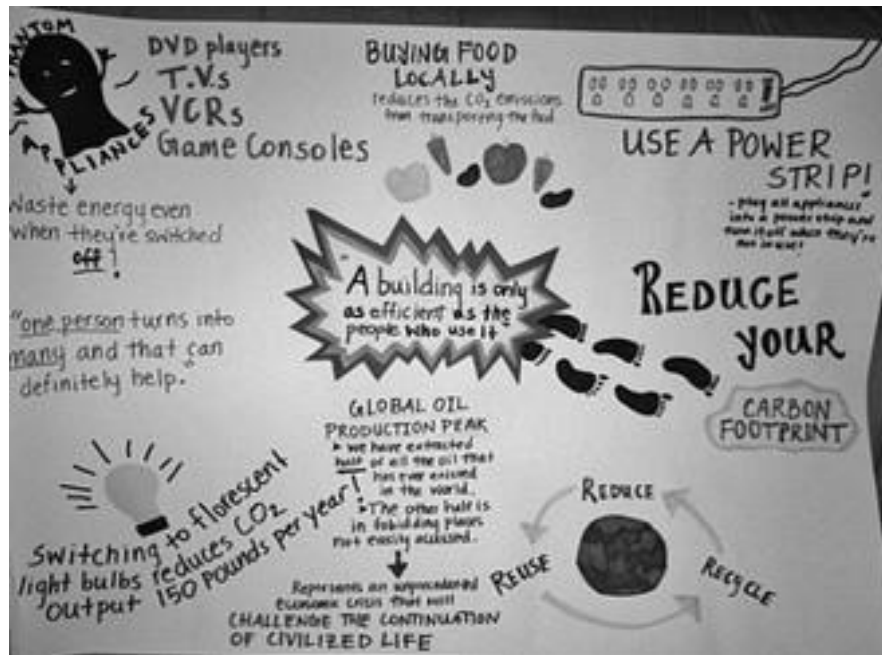 PHANTOM
APPLIANCES
DVD players
T.V.s
VCRs
Game Consoles
Waste energy even
when they're switched
off!
"one person turns into
many and that can
definitely help."
BUYING FOOD
LOCALLY
reduces the CO2 emissions
from transporting the food
USE A POWER
STRIP!
- plug all appliances
into a power strip and
turn it off when they're
not in use!
"A building is only
as efficient as the
people who use it"
REDUCE
YOUR
CARBON
FOOTPRINT
GLOBAL OIL
PRODUCTION PEAK
we have extracted
half of all the oil that
has ever existed
in the world.
The other half is
in forbidding places
not easily accessed.
Represents an unprecedented
economic crisis that will
CHALLENGE THE CONTINUATION
OF CIVILIZED LIFE
Switching to florescent
light bulbs reduces CO2
output 150 pounds per year!
REDUCE
REUSE
RECYCLE